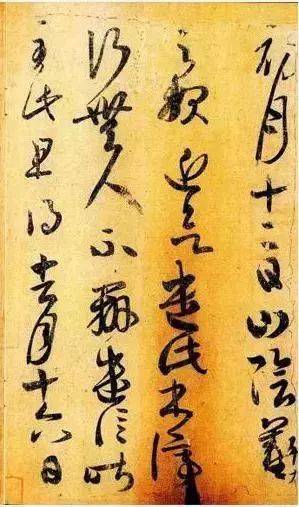 初月十二日山陰羲
之報近欲遣此書停
行無人不辦遣信昨
至此且得去月十六日